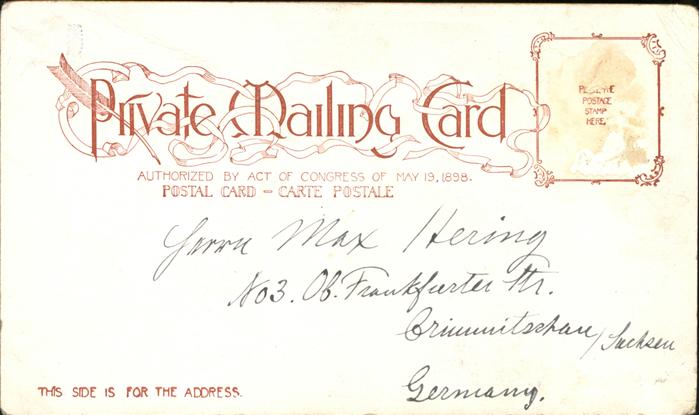 Private Mailing Card
PLACE THE
POSTAGE
STAMP
HERE.
AUTHORIZED BY ACT OF CONGRESS OF MAY 19, 1898.
POSTAL CARD – CARTE POSTALE
Herrn Max Hering
No 3. Ob. Frankfurter Str.
Crimmitschau / Sachsen
Germany.
THIS SIDE IS FOR THE ADDRESS.